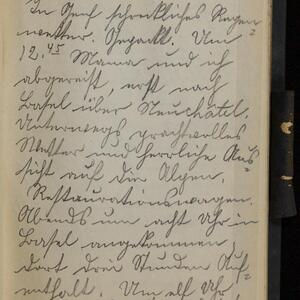 In Genf schreckliches Regen=
wetter. Gepackt. Um
12.45 Mama und ich
abgereist, erst nach
Basel über Neuchâtel.
Unterwegs prachtvolles
Wetter und herrliche Aus=
sicht auf die Alpen.
Restaurationswagen.
Abends um acht Uhr in
Basel angekommen,
dort drei Stunden Auf=
enthalt. Um elf Uhr,